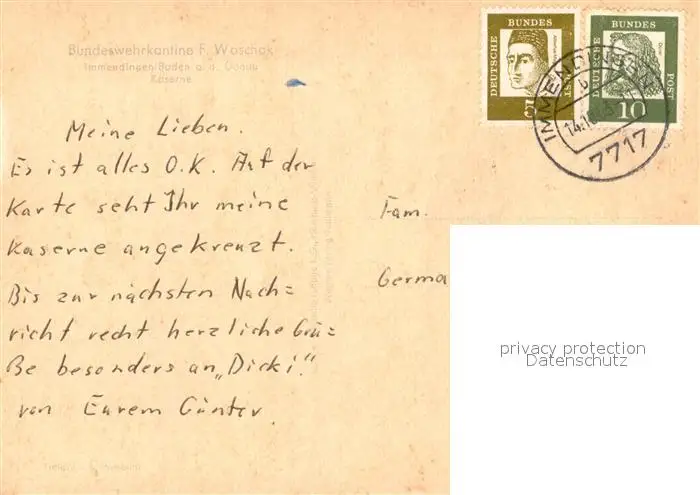 Bundeswehrkantine F. Waschak
Immendingen/Baden a. d. Donau
Kaserne
Meine Lieben.
Es ist alles O.K. Auf der
Karte seht Ihr meine
Kaserne angekreuzt.
Bis zur nächsten Nach=
richt recht herzliche Grü=
ße besonders an „Dicki."
von Eurem Günter.
DEUTSCHE BUNDESPOST
5
DEUTSCHE BUNDES POST
10
IMMENDINGEN
7717
Fam.
Germa
privacy protection
Datenschutz